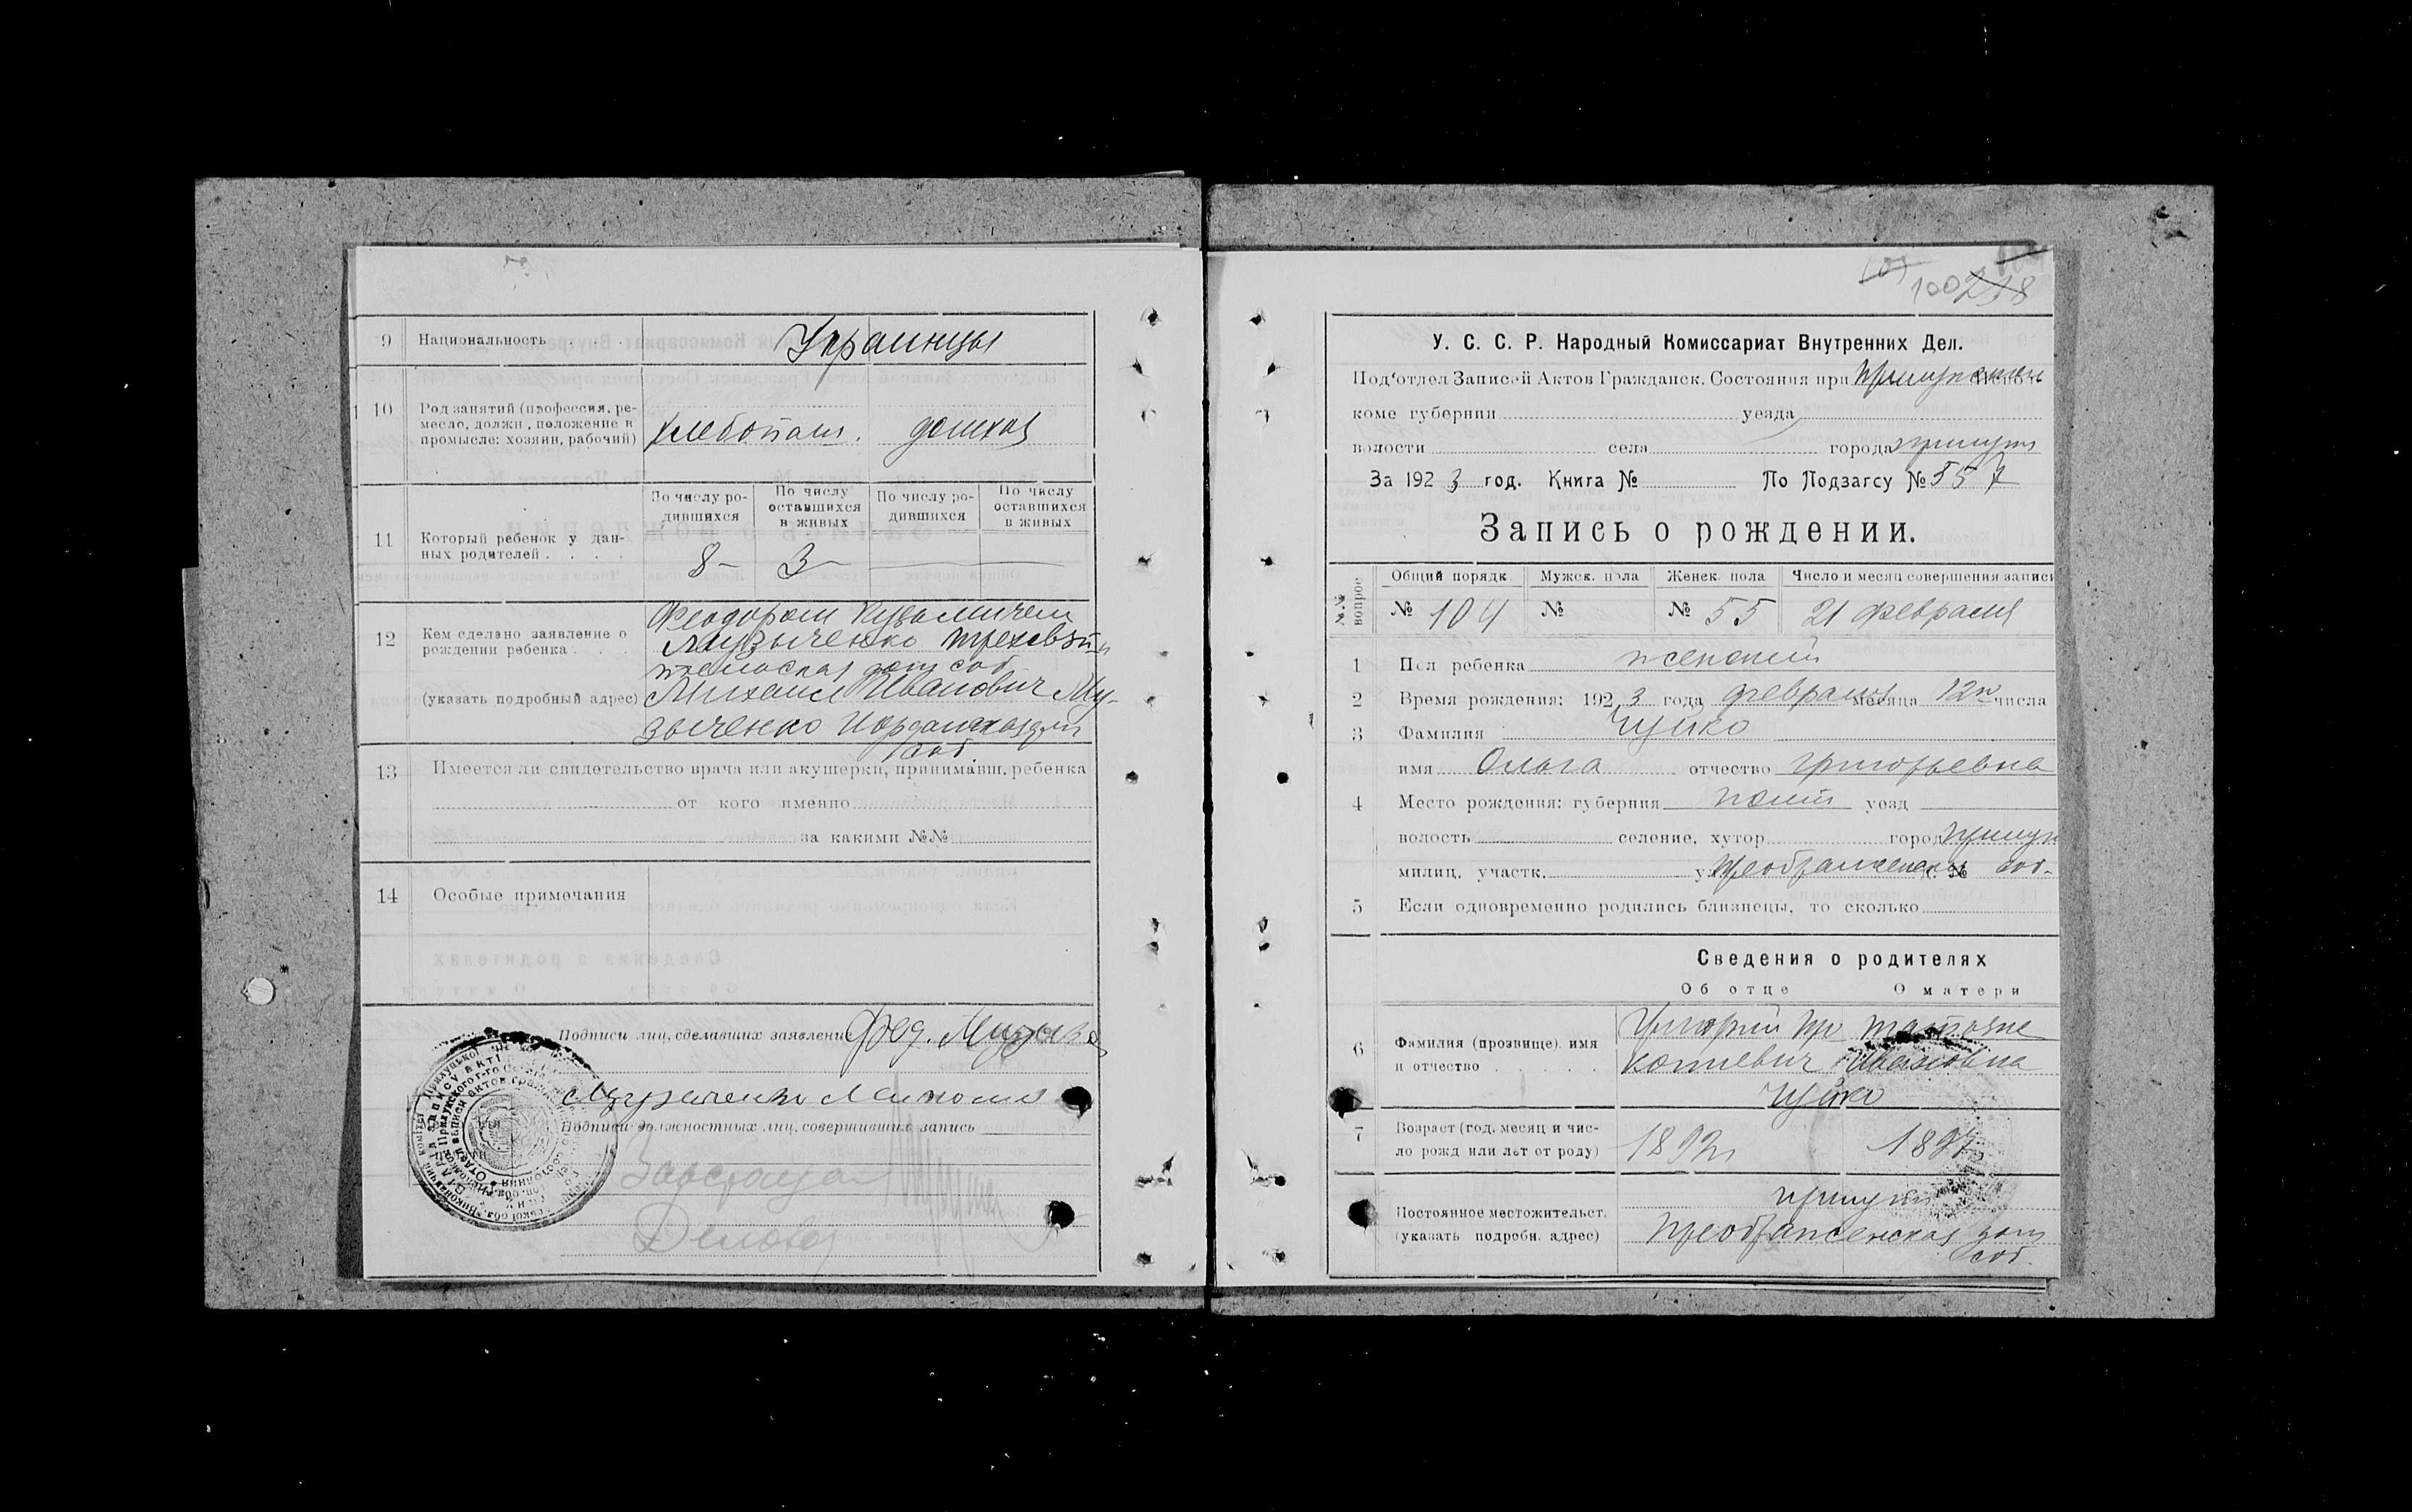 9 Национальность . . . Украинцы
10 Род занятий (профессия, ре-
месло, должн, положение в
промысле: хозяин, рабочий)
хлебопаш. домхоз
11 Который ребенок у дан-
ных родителей . . . .
По числу ро-
дившихся
По числу
оставшихся
в живых
По числу ро-
дившихся
По числу
оставшихся
в живых
8 – 3 –
12 Кем сделано заявление о
рождении ребенка . . .
(указать подробный адрес)
Феодором Кузьмичем
Музыченко
дом соб.
Михаил Иванович Му-
зыченко
соб.
13 Имеется ли свидетельство врача или акушерки, принимавш. ребенка
от кого именно
за какими №№
14 Особые примечания
Подписи лиц, сделавших заявление Фед.
Музыченко
Подписи должностных лиц, совершивших запись
Завзагсом
Делов
100
218
У. С. С. Р. Народный Комиссариат Внутренних Дел.
Под'отдел Записей Актов Гражданск. Состояния при
коме губернии уезда
волости села города
За 1923 год. Книга № По Подзагсу № 557
Запись о рождении.
№№ вопрос
Общий порядк Мужск. пола Женск. пола Число и месяц совершения записи
№ 104 № № 55 21 февраля
1 Пол ребенка женский
2 Время рождения: 1923 года февраля месяца 12го числа
3 Фамилия Чуйко
имя Ольга отчество Григорьевна
4 Место рождения: губерния Полт уезд
волость селение, хутор город Прилук
милиц. участк. ул. Преображенск. № соб.
5 Если одновременно родились близнецы, то сколько
Сведения о родителях
Об отце О матери
6 Фамилия (прозвище), имя
и отчество . . . . .
Григорий Про-
копиевич
Ивановна
Чуйко
7 Возраст (год, месяц и чис-
ло рожд или лет от роду)
1892 1897
Постоянное местожительст.
(указать подробн. адрес)
Прилуки
Преображенская дом
соб.